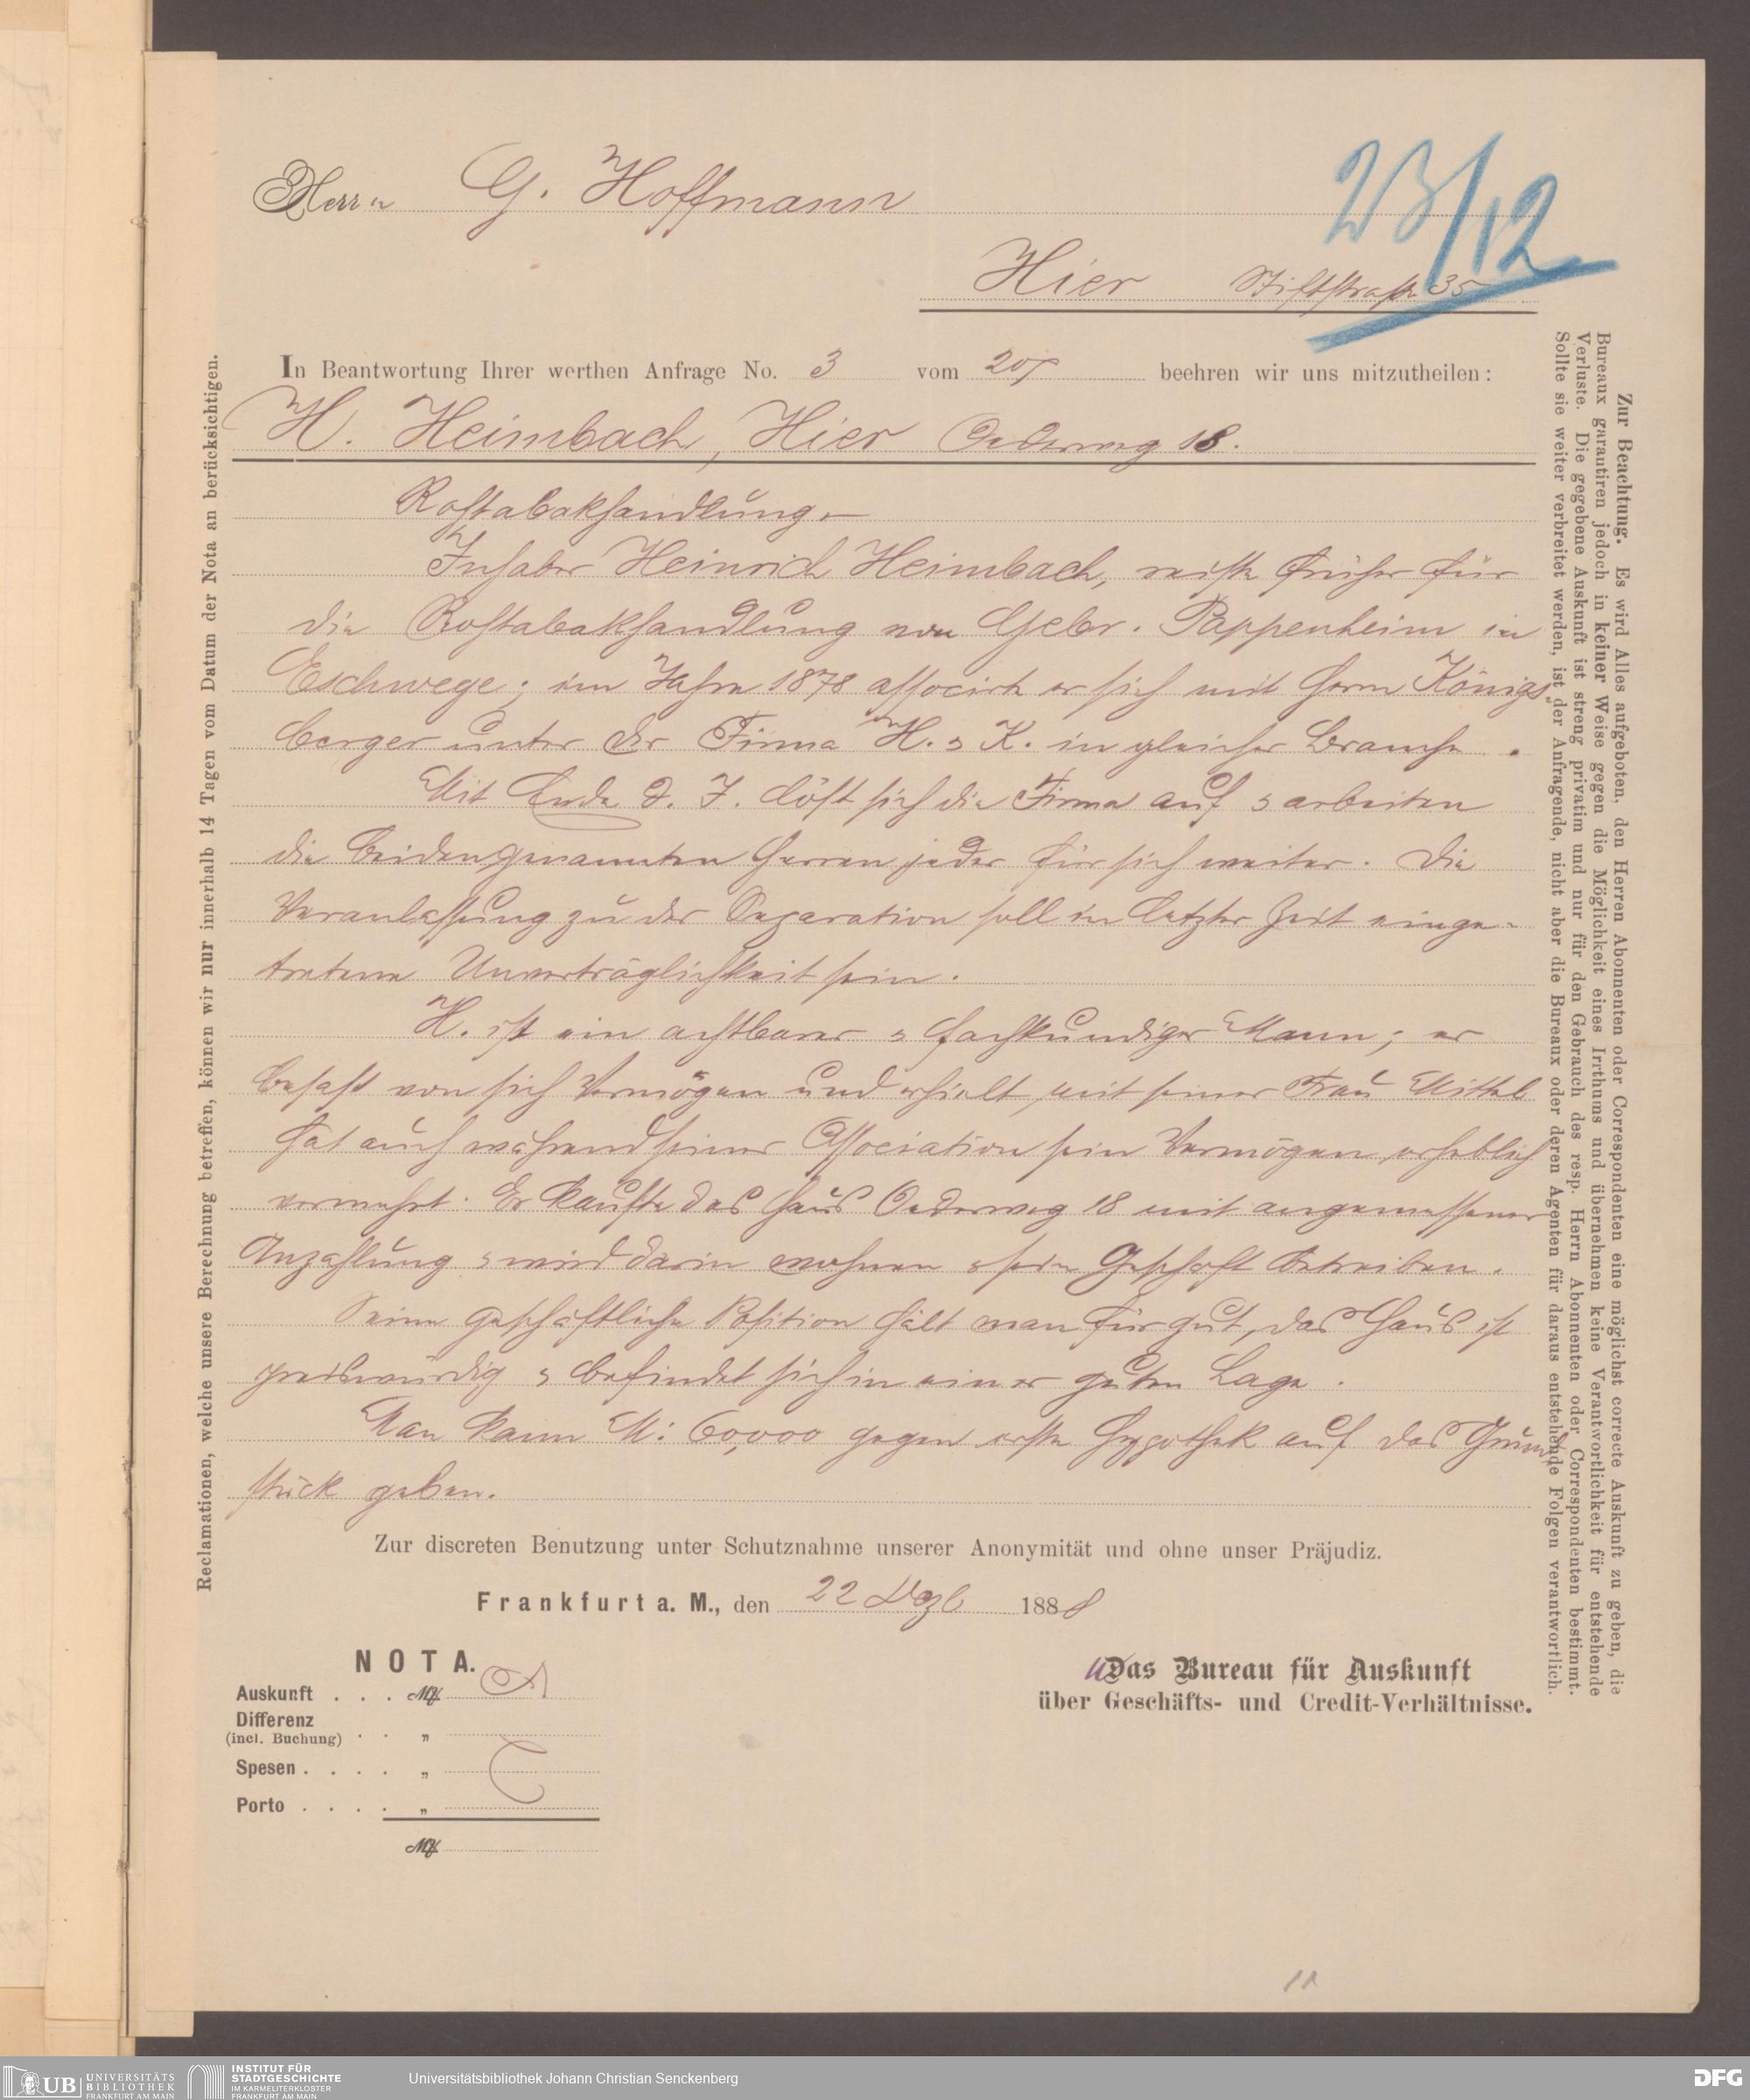 Herrn G. Hoffmann
23/12
Hier Stiftstraße 35
In Beantwortung Ihrer werthen Anfrage No. 3 vom 20/ beehren wir uns mitzutheilen:
H. Heimbach, Hier Oederweg 18.
Rohtabakhandlung.—
Inhaber Heinrich Heimbach, reiste früher für
die Rohtabakhandlung von Gebr. Pappenheim in
Eschwege; im Jahre 1878 associrte er sich mit Herrn Königs-
berger unter der Firma H. & K. in gleicher Branche.
Mit Ende d. J. löst sich die Firma auf & arbeiten
die beiden genannten Herren jeder für sich weiter. Die
Veranlassung zu der Separation soll in letzter Zeit einge-
tretene Unverträglichkeit sein.
H. ist ein achtbarer & fachkundiger Mann; er
besaß von sich Vermögen und erhielt mit seiner Frau Mittel
hat auch während seiner Association sein Vermögen erheblich
vermehrt. Er kaufte das Haus Oederweg 18 mit angemessener
Anzahlung & wird darin wohnen & sein Geschäft betreiben.
Seine geschäftliche Position hält man für gut, das Haus ist
preiswürdig & befindet sich in einer guten Lage.
Man kann M: 60,000 gegen erste Hypothek auf das Grund-
stück geben.
Zur discreten Benutzung unter Schutznahme unserer Anonymität und ohne unser Präjudiz.
Frankfurt a. M., den 22 Dezb 1888
NOTA.
Auskunft . . . M
Differenz
(incl. Buchung) . . "
Spesen . . . . "
Porto . . . . "
M
Das Bureau für Auskunft
über Geschäfts- und Credit-Verhältnisse.
Reclamationen, welche unsere Berechnung betreffen, können wir nur innerhalb 14 Tagen vom Datum der Nota an berücksichtigen.
Zur Beachtung. Es wird Alles aufgeboten, den Herren Abonnenten oder Correspondenten eine möglichst correcte Auskunft zu geben, die
Bureaux garantiren jedoch in keiner Weise gegen die Möglichkeit eines Irrthums und übernehmen keine Verantwortlichkeit für entstehende
Verluste. Die gegebene Auskunft ist streng privatim und nur für den Gebrauch des resp. Herrn Abonnenten oder Correspondenten bestimmt.
Sollte sie weiter verbreitet werden, ist der Anfragende, nicht aber die Bureaux oder deren Agenten für daraus entstehende Folgen verantwortlich.
11
UB UNIVERSITÄTS
BIBLIOTHEK
FRANKFURT AM MAIN
INSTITUT FÜR
STADTGESCHICHTE
IM KARMELITERKLOSTER
FRANKFURT AM MAIN
Universitätsbibliothek Johann Christian Senckenberg
DFG